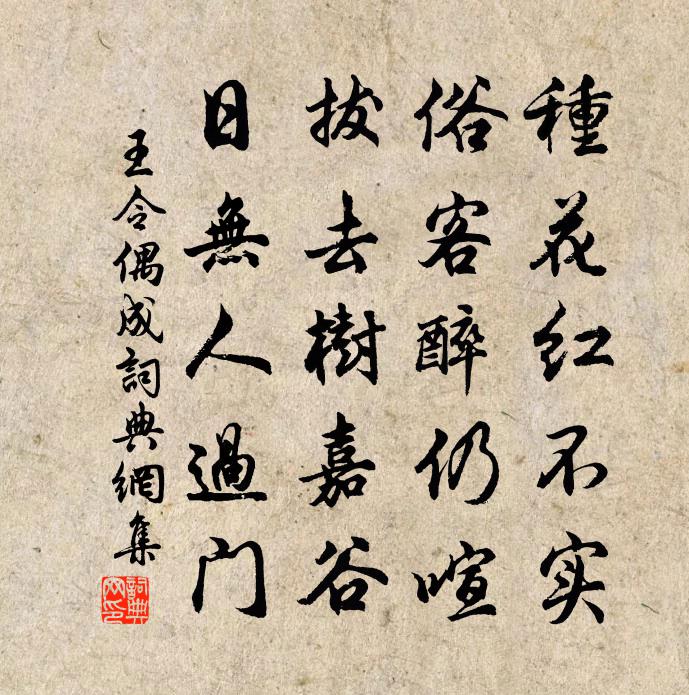 種花红不实
俗客醉仍喧
拔去樹嘉谷
日無人過门
王令偶成詞典網集
詞典网印